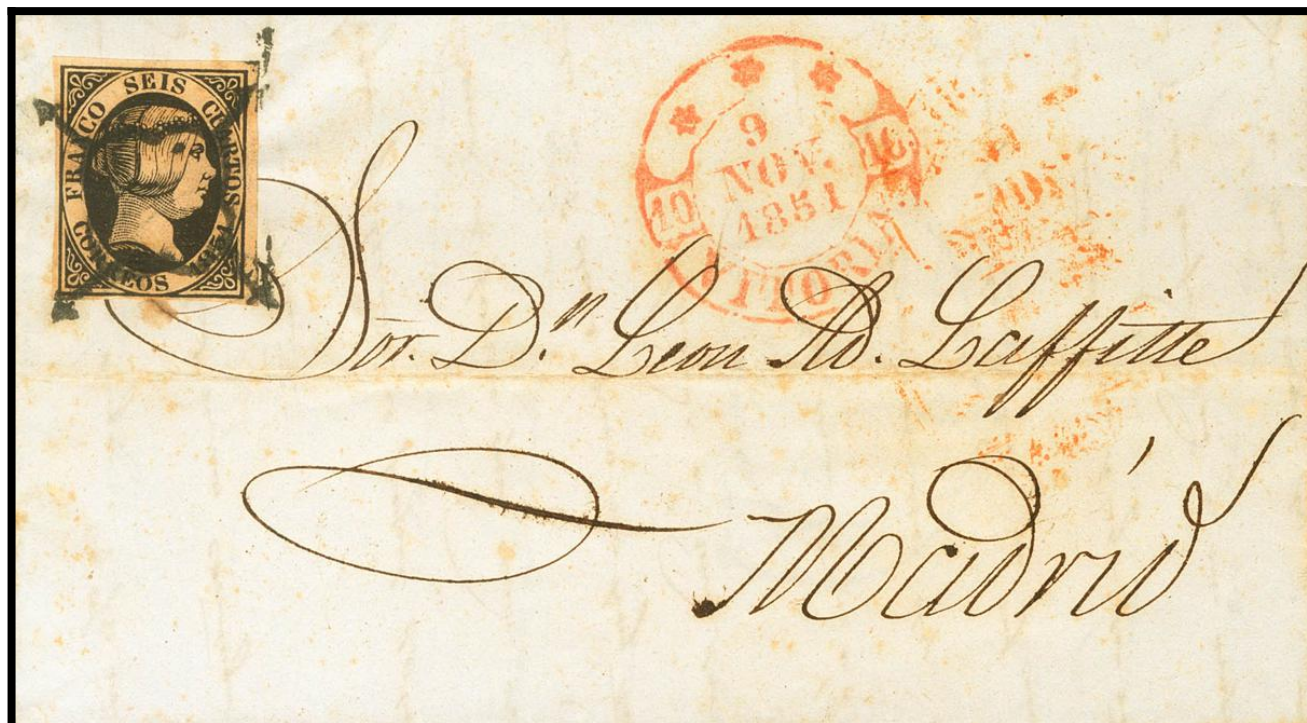 FRANCO SEIS CUARTOS
CORREOS 1851
9
NOV.
1851
10 10
VITORIA
Sor. Dⁿ. Leon Ad. Laffitte
Madrid